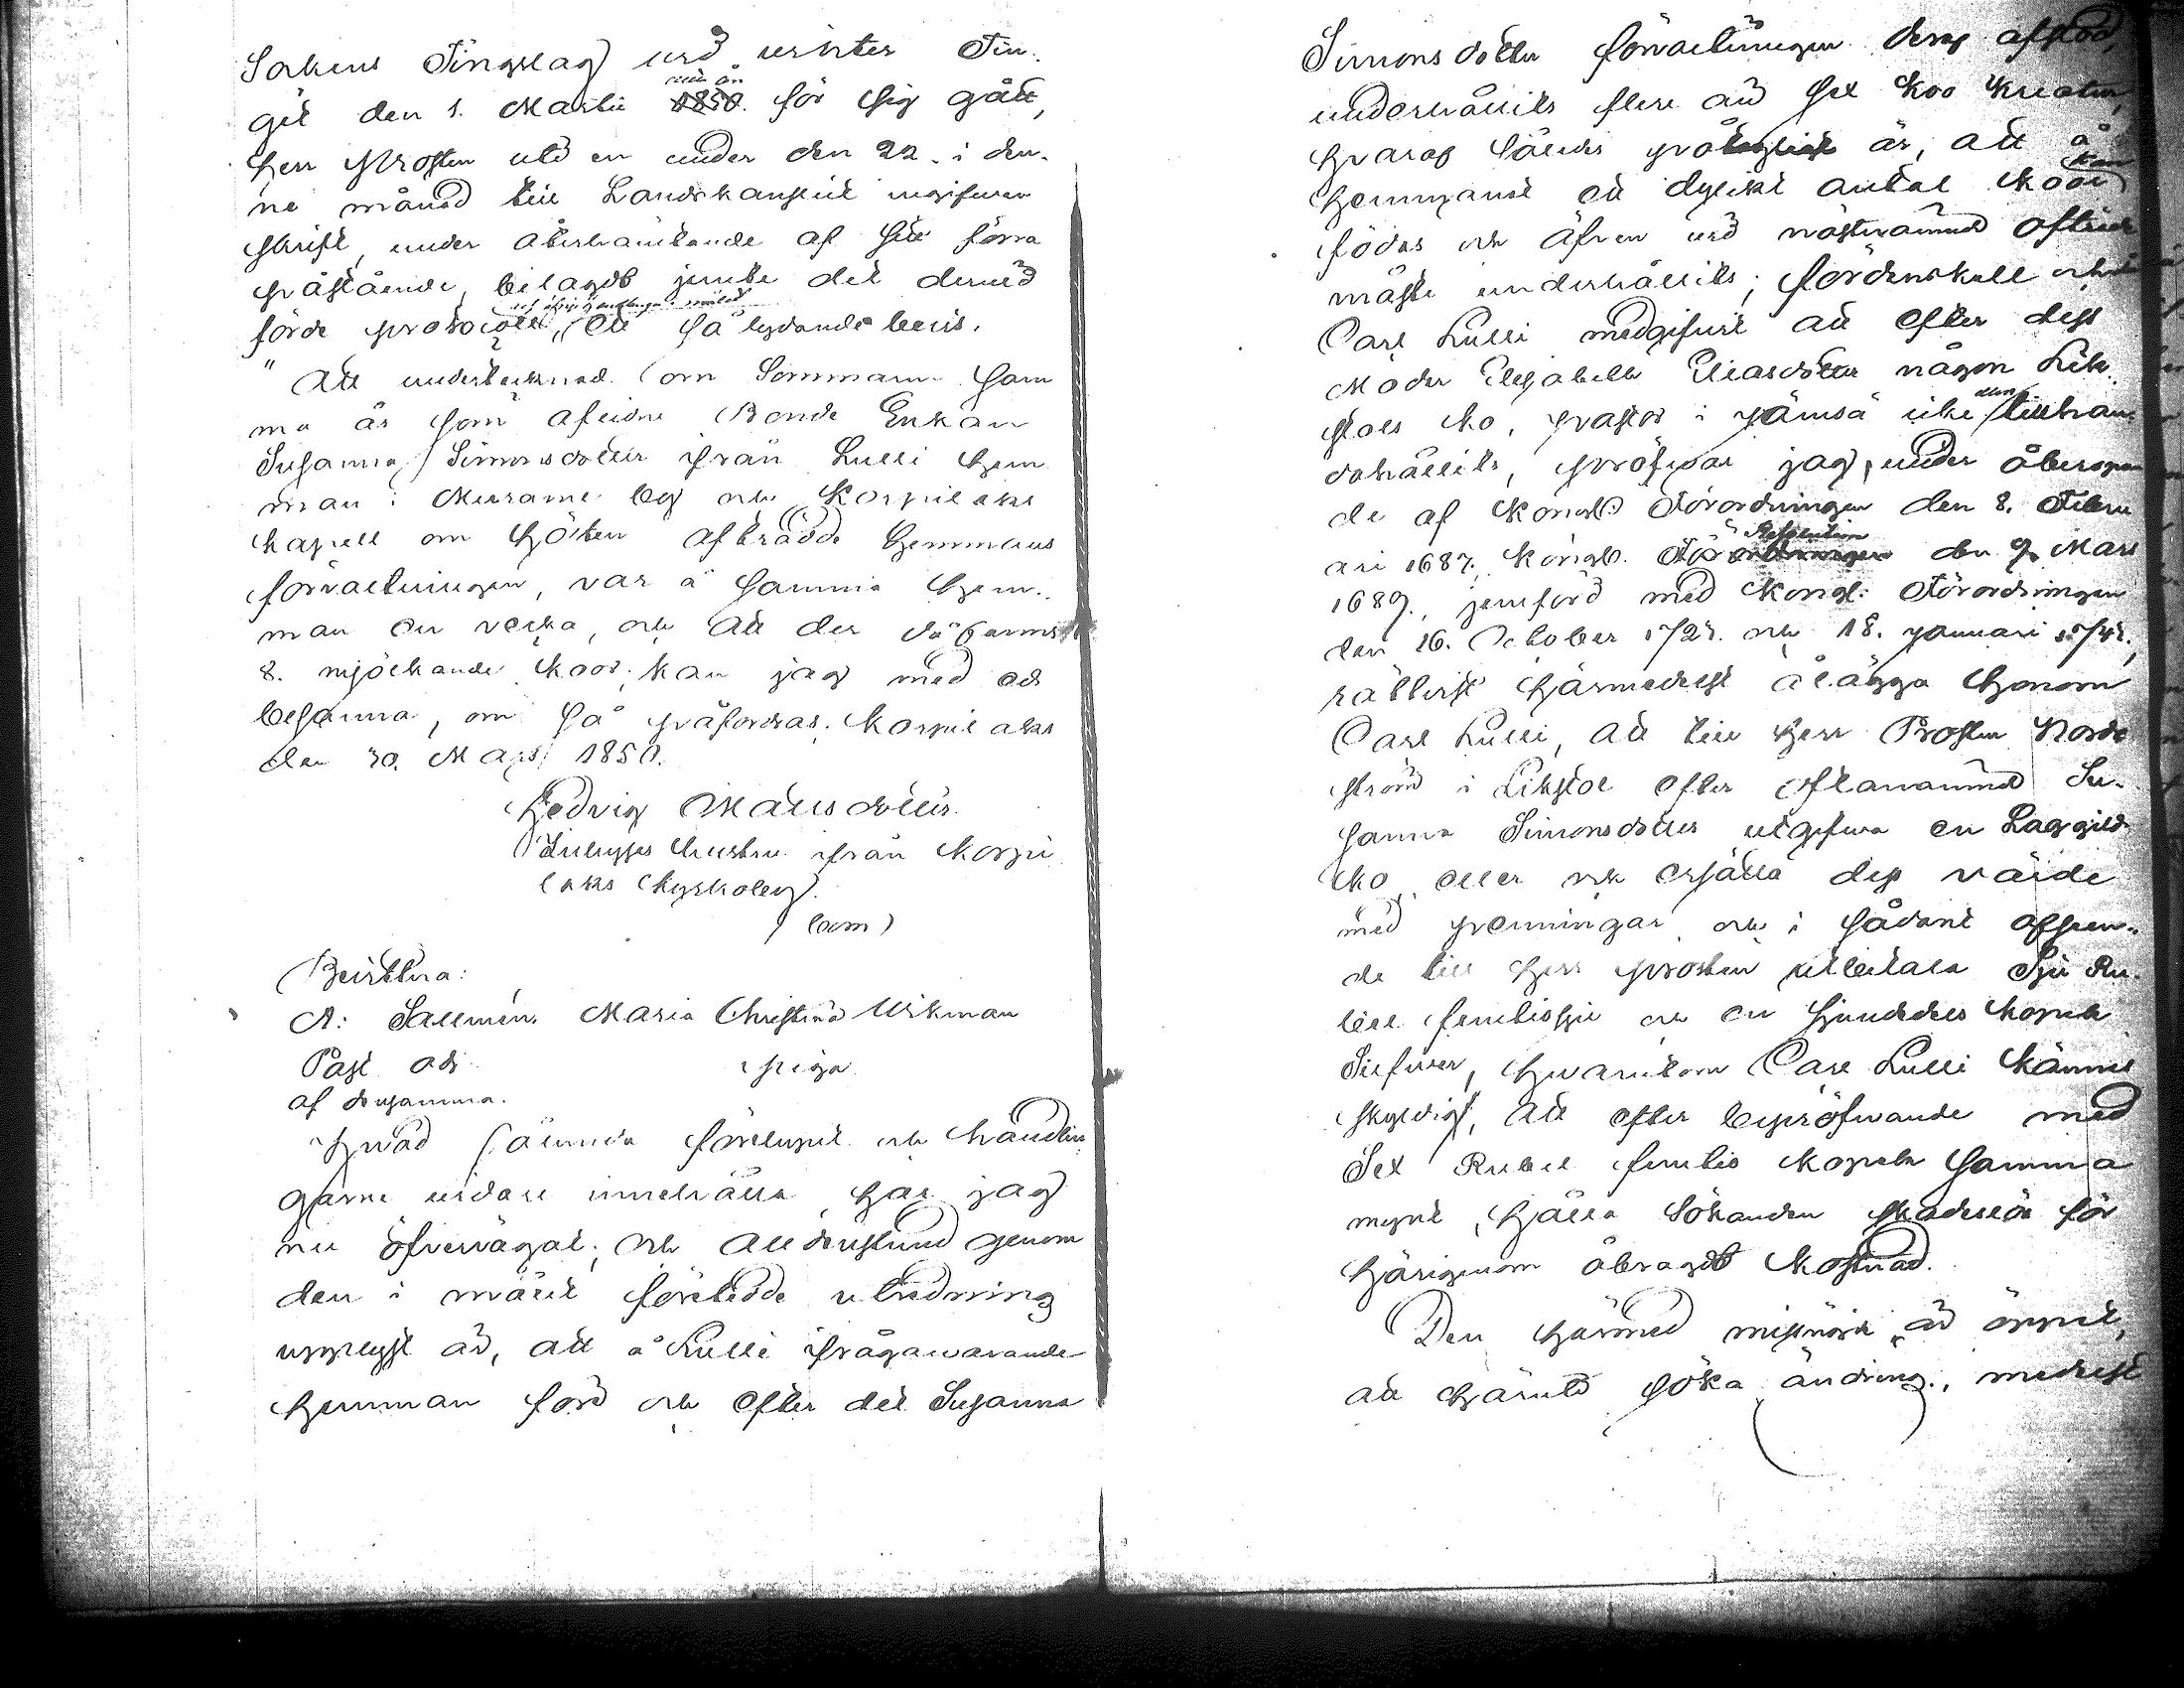 Sockens Tingslag vid vinter Tin-
get den 1. Martii 1850. för sig gått,
Herr Prosten uti en under den 22. i den-
ne månad till Landskansliet ingifven
skrift, under återhämtande af sitt förra
påstående, bilagdt jemte det dervid
förde protocoll, ett så lydande bevis.
"Att undertecknad om Sommarn sam
ma år som afledne Bonde Enkan
Susanna Simonsdotter ifrån Lulli hem
man i Muurame by och Korpilaks
kapell om hösten afträdde hemmans
förvaltningen, var å samma hem-
man en vecka, och att der då fanns
8. mjölkande koor, kan jag med ed
besanna, om så påfordras. Korpilaks
den 30. Mars 1850.
Hedvig Mattsdotter
Inhyses hustru ifrån Korpi
laks Kyrkoby.
(bom)
Bevittna:
A: Sallmén. Maria Christina Wikman
Past. adj. piga
af Susanna.
Hvad sålunda förelupit och handlin
garne vidare innehålla, har jag
nu öfvervägat; och alldenstund genom
den i målet förebragde utredning
upplyst är, att å Lulli ifrågavarande
hemman förr och efter det Susanna
Simonsdotter förvaltningen deraf afstod,
underhållits flere än sex Koo Kreatur,
hvaraf således påtagligt är, att å
hemmanet ett dylikt antal Koor kan
födas och äfven vid nästnämnd aftride
måste underhållits; fördenskull och då
Carl Lulli medgifvit att efter dess
Moder Elisabeth Eliasdotter någon Lik-
stols ko, prästen i Jämsä icke tillhan-
dahållits, pröfvar jag, under åberopan
de af Kongl. Förordningen den 8. Febru
ari 1687. Kongl. Resolution den 9. Mars
1689., jemförd med Kongl. Förordningen
den 16. October 1723. och 18. Januari 1743.,
rättvist härmedelst ålägga honom
Carl Lulli, att till Herr Prosten Nord
ström i Likstol efter oftanämnd Su-
sanna Simonsdotter utgifva en Laggild
ko, eller ock ersätta dess värde
med penningar och i sådant afseen-
de till Herr Prosten utbetala Sju Ru-
bel femtisju och en half kopek
Silfver, hvarutom Carl Lulli kännes
skyldig, att efter bepröfvande med
Sex Rubel femtio kopek samma
mynt, hålla Sökanden skadeslös för
härigenom åbragdt kostnad.
Den härmed missnöjd är öppet,
att häruti söka ändring, medelst